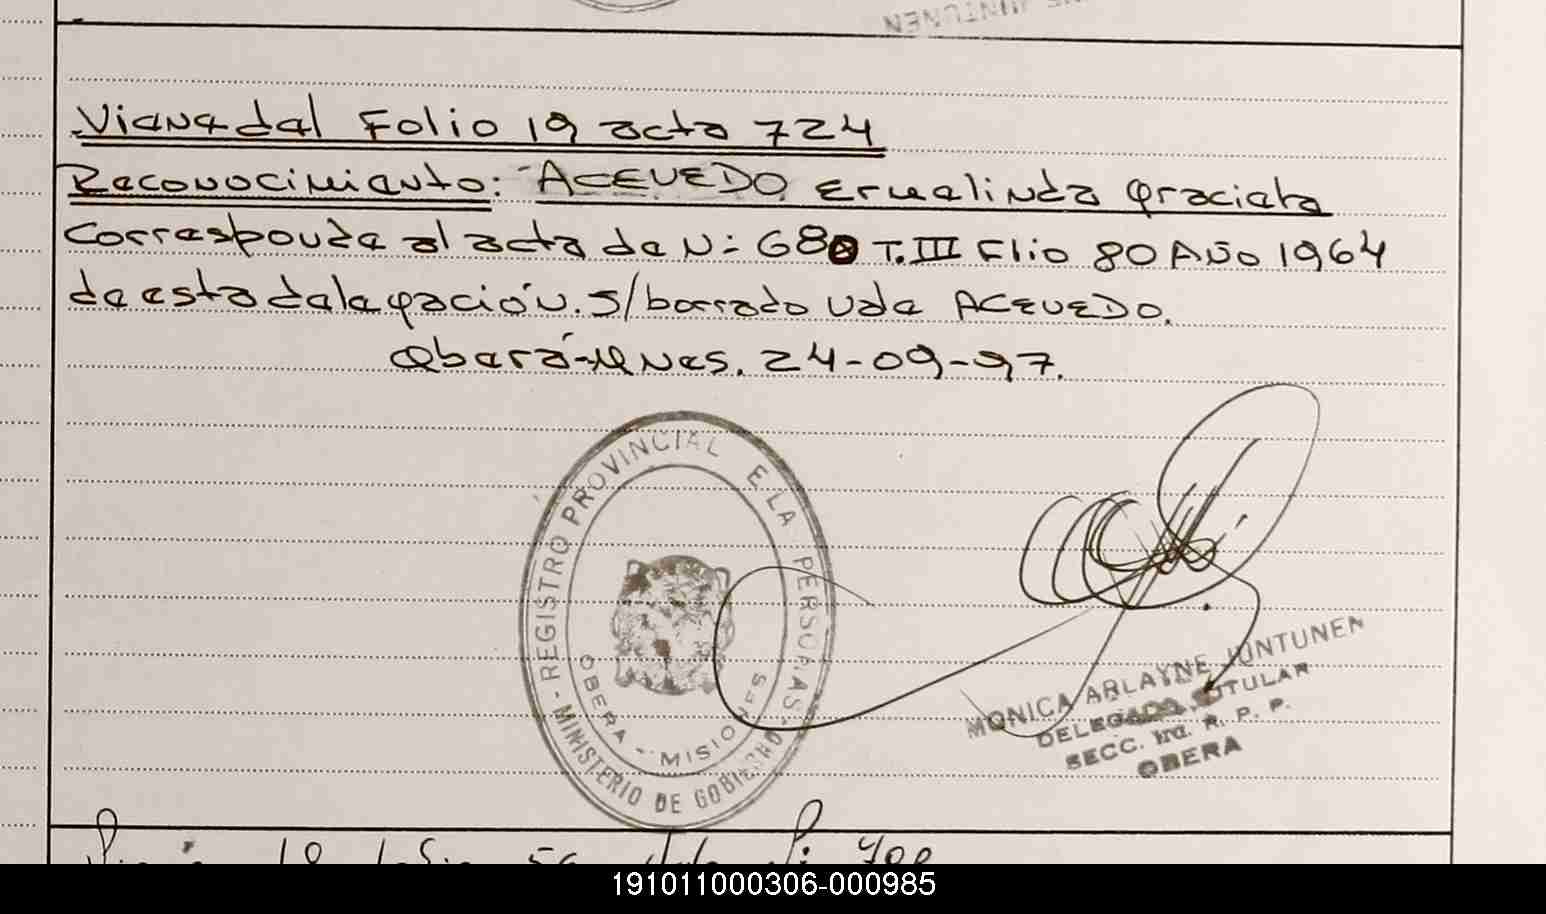 NE JUNTUNEN
Viene del Folio 19 acta 724
Reconocimiento: ACEVEDO Ermelinda Graciela
Corresponde al acta de N= 680 T.III Flio 80 Año 1964
de esta delegación. S/borrado Vale ACEVEDO.
Oberá-Mnes. 24-09-97.
- REGISTRO PROVINCIAL E LA PERSONAS -
MINISTERIO DE GOBIERNO
OBERA - MISIONES
MONICA ARLAYNE JUNTUNEN
DELEGADA TITULAR
SECC. 1ra. R. P. P.
OBERA
191011000306-000985